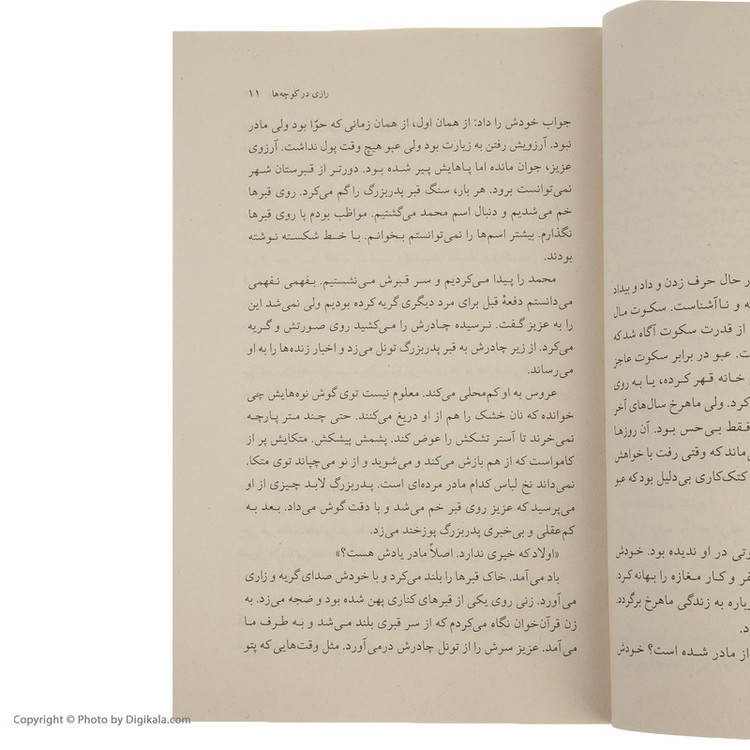 رازی در کوچه‌ها ۱۱
جواب خودش را داد: از همان اول، از همان زمانی که حوّا بود ولی مادر
نبود. آرزویش رفتن به زیارت بود ولی عبو هیچ وقت پول نداشت. آرزوی
عزیز، جوان مانده اما پاهایش پیر شده بود. دورتر از قبرستان شهر
نمی‌توانست برود. هر بار، سنگ قبر پدربزرگ را گم می‌کرد. روی قبرها
خم می‌شدیم و دنبال اسم محمد می‌گشتیم. مواظب بودم پا روی قبرها
نگذارم. بیشتر اسم‌ها را نمی‌توانستم بخوانم. با خط شکسته نوشته
بودند.
محمد را پیدا می‌کردیم و سر قبرش می‌نشستیم. بفهمی نفهمی
می‌دانستم دفعهٔ قبل برای مرد دیگری گریه کرده بودیم ولی نمی‌شد این
را به عزیز گفت. نرسیده چادرش را می‌کشید روی صورتش و گریه
می‌کرد. از زیر چادرش به قبر پدربزرگ تونل می‌زد و اخبار زنده‌ها را به او
می‌رساند.
عروس به او کم‌محلی می‌کند. معلوم نیست توی گوش نوه‌هایش چی
خوانده که نان خشک را هم از او دریغ می‌کنند. حتی چند متر پارچه
نمی‌خرند تا آستر تشکش را عوض کند. پشمش پیشکش. متکایش پر از
کامواست که از هم بازش می‌کند و می‌شوید و از نو می‌چپاند توی متکا.
نمی‌داند نخ لباس کدام مادر مرده‌ای است. پدربزرگ لابد چیزی از او
می‌پرسید که عزیز روی قبر خم می‌شد و با دقت گوش می‌داد. بعد به
کم‌عقلی و بی‌خیری پدربزرگ پوزخند می‌زد.
«اولاد که خیری ندارد. اصلاً مادر یادش هست؟»
باد می‌آمد. خاک قبرها را بلند می‌کرد و با خودش صدای گریه و زاری
می‌آورد. زنی روی یکی از قبرهای کناری پهن شده بود و ضجه می‌زد. به
زن قرآن‌خوان نگاه می‌کردم که از سر قبری بلند می‌شد و به طرف ما
می‌آمد. عزیز سرش را از تونل چادرش درمی‌آورد. مثل وقت‌هایی که پتو
ر حال حرف زدن و داد و بیداد
ه و ناآشناست. سکوت مال
از قدرت سکوت آگاه شد که
ت. عبو در برابر سکوت عاجز
خانه قهر کرده، یا به روی
کرد. ولی ماهرخ سال‌های آخر
فقط بی‌حس بود. آن روزها
ی‌ماند که وقتی رفت با خواهش
کتک‌کاری بی‌دلیل بود که عبو
ورتی در او ندیده بود. خودش
فر و کار مغازه را بهانه کرد.
باره به زندگی ماهرخ برگردد
د.
از مادر شده است؟ خودش
Copyright © Photo by Digikala.com